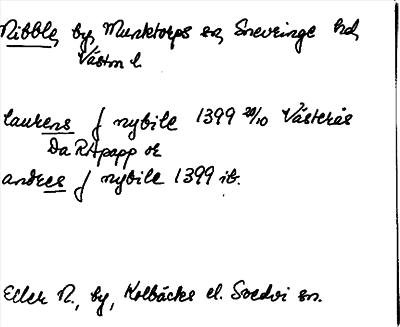 Nibble, by, Munktorps sn, Snevringe hd,
Västm l.
laurens f nybile 1399 20/10 Västerås
Da RApapp or
andres f nybile 1399 ib.
Eller N., by, Kolbäcks el. Svedvi sn.